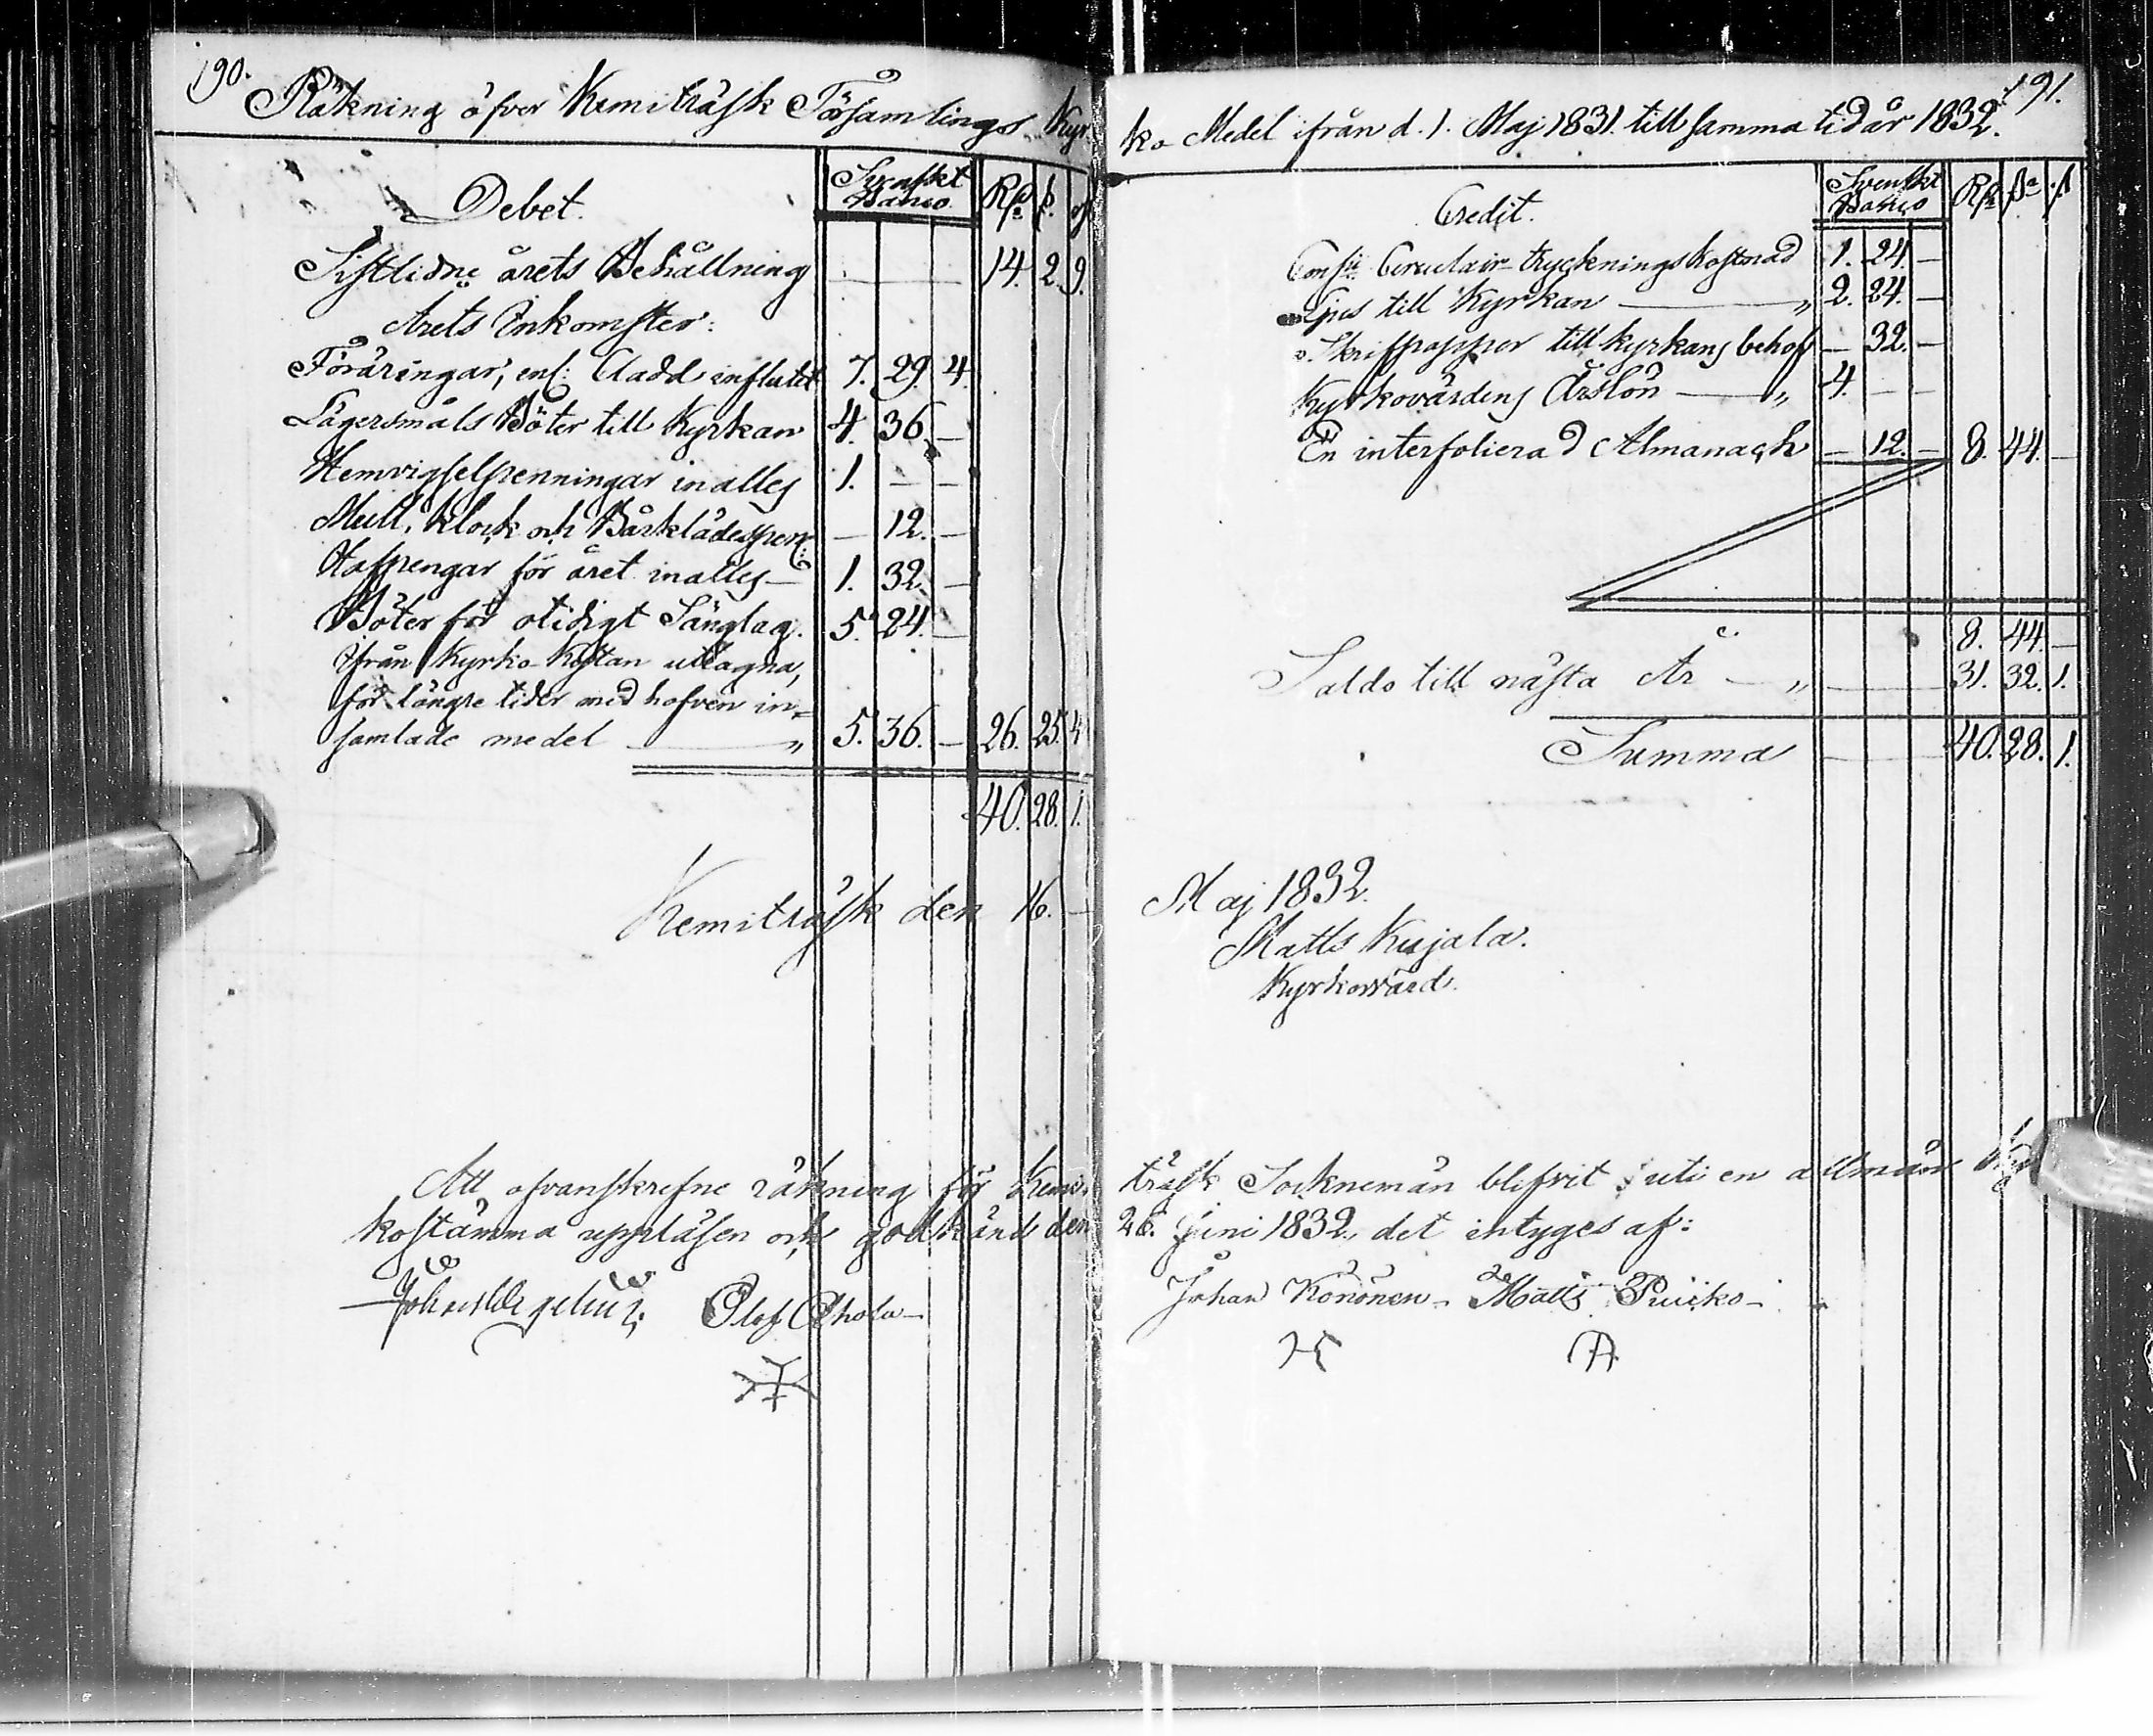 190.
Räkning öfver Kemiträsk Församlings Kyr-
Debet. Svenskt Banco. Rd. ß. rst
Sistlidne årets Behållning — 14. 2. 9.
Årets Inkomster:
Föräringar, enl: Cladd influtit 7. 29. 4.
Lägersmåls Böter till Kyrkan 4. 36. —
Hemvigselpenningar inalles 1. — —
Mull, klock och Bårklädespen: — 12. —
Hafpengar för året inalles — 1. 32. —
Böter för otidigt Sänglag. 5. 24. —
Ifrån Kyrko-Kistan uttagna,
för längre tider med hofven in=
samlade medel — „ 5. 36. — 26. 25. 4
40. 28. 1.
Kemiträsk den 16. —
Att ofvanskrefne räkning för Kemi-
kostämma uppläsen och godkänd den
Olof Ahola —
191.
ko Medel ifrån d. 1. Maj 1831. till samma tid år 1832.
Credit. Svenskt Banco Rd ß rst
Consii Circulair-tryckningskostnad 1. 24. —
Ljus till Kyrkan — „ 2. 24. —
Skrifpapper till kyrkans behof — 32. —
Kyrkovärdens Årslön — „ 4. — —
En interfolierad Almanach — 12. — 8. 44. —
8. 44. —
Saldo till nästa År — „ — 31. 32. 1.
Summa — 40. 28. 1.
Maj 1832.
Matts Kujala.
Kyrkovärd.
träsk Socknemän blifvit uti en allmän
26. Juni 1832, det intyges af:
Johan Könönen — Matts Puikko —